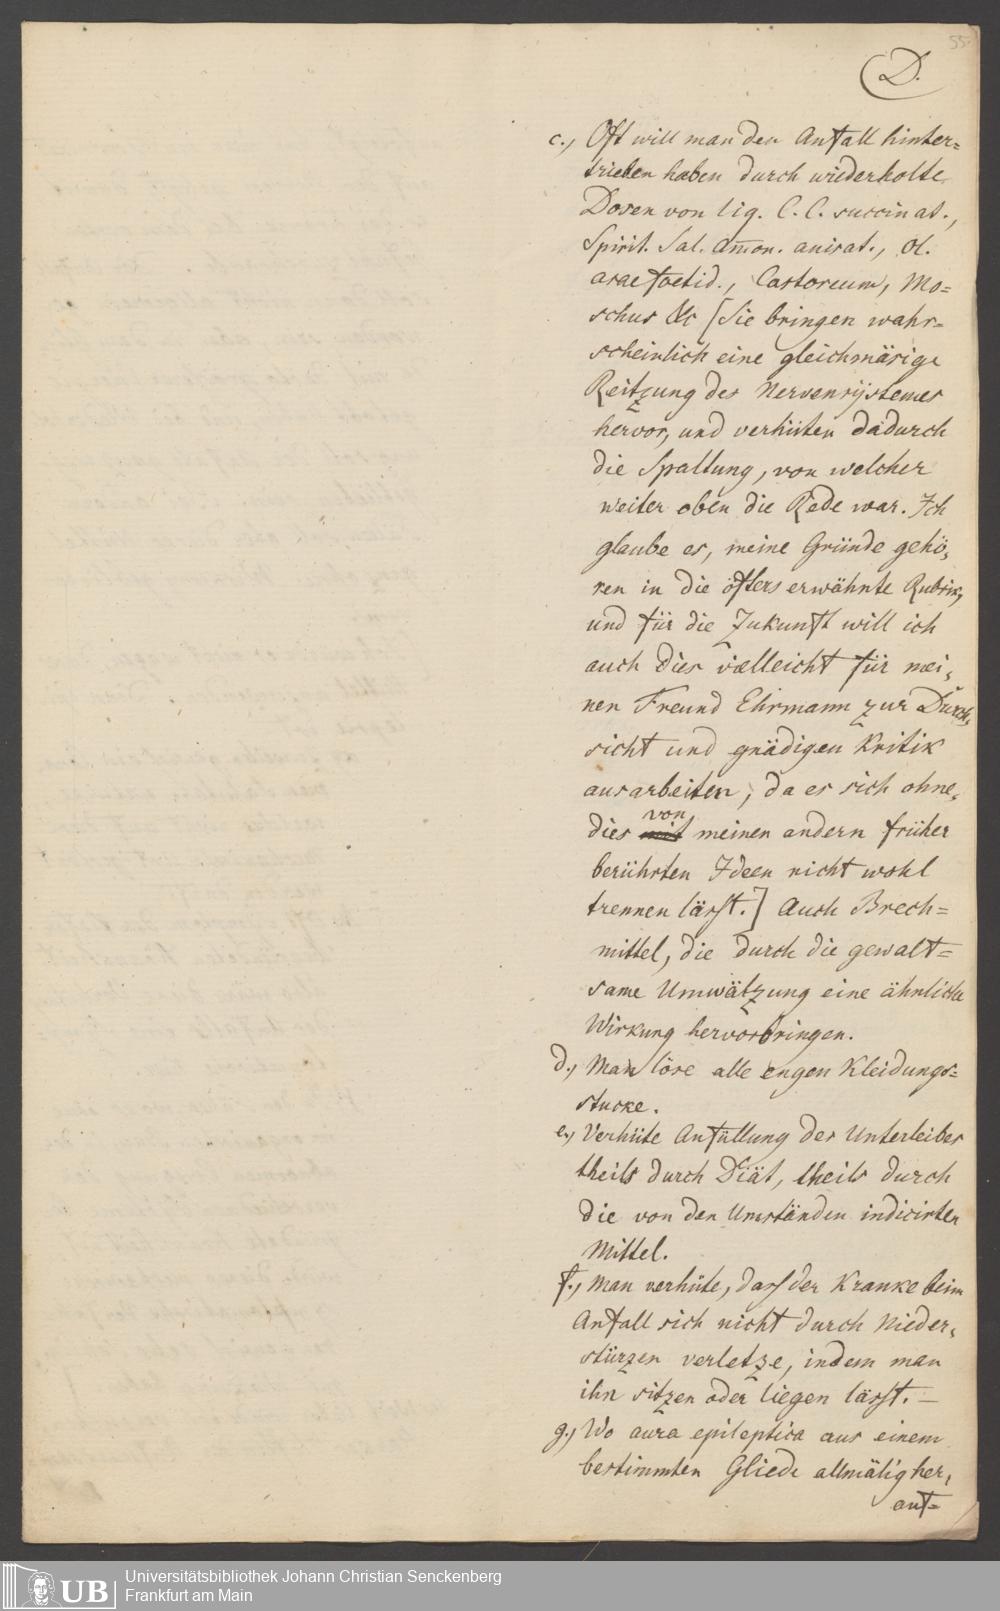 55.
D.
c., Oft will man den Anfall hinter=
trieben haben durch wiederholte
Dosen von liq. C. C. succinat.,
Spirit. Sal. Am̄on. anisat., Ol.
asae foetid., Castoreum, Mo=
schus &c [Sie bringen wahr=
scheinlich eine gleichmäsige
Reitzung des Nervensÿstemes
hervor, und verhüten dadurch
die Spaltung, von welcher
weiter oben die Rede war. Ich
glaube es, meine Gründe gehö,
ren in die öfters erwähnte Rubrik,
und für die Zukunft will ich
auch dies vielleicht für mei,
nen Freund Ehrmann zur Durch,
sicht und gnädigen Kritik
ausarbeiten, da es sich ohne,
von
dies mit meinen andern früher
berührten Ideen nicht wohl
trennen läsſt.] Auch Brech=
mittel, die durch die gewalt=
same Umwältzung eine ähnliche
Wirkung hervorbringen.
d., Man löse alle engen Kleidungs=
stucke.
e., Verhüte Anfüllung des Unterleibes
theils durch Diät, theils durch
die von den Umständen indicirten
Mittel.
f., Man verhüte, dasſ der Kranke beim
Anfall sich nicht durch Nieder,
stürzen verletze, indem man
ihn sitzen oder liegen läsſt. —
g., Wo aura epileptica aus einem
bestimmten Gliede allmälig her,
auf=
UB
Universitätsbibliothek Johann Christian Senckenberg
Frankfurt am Main